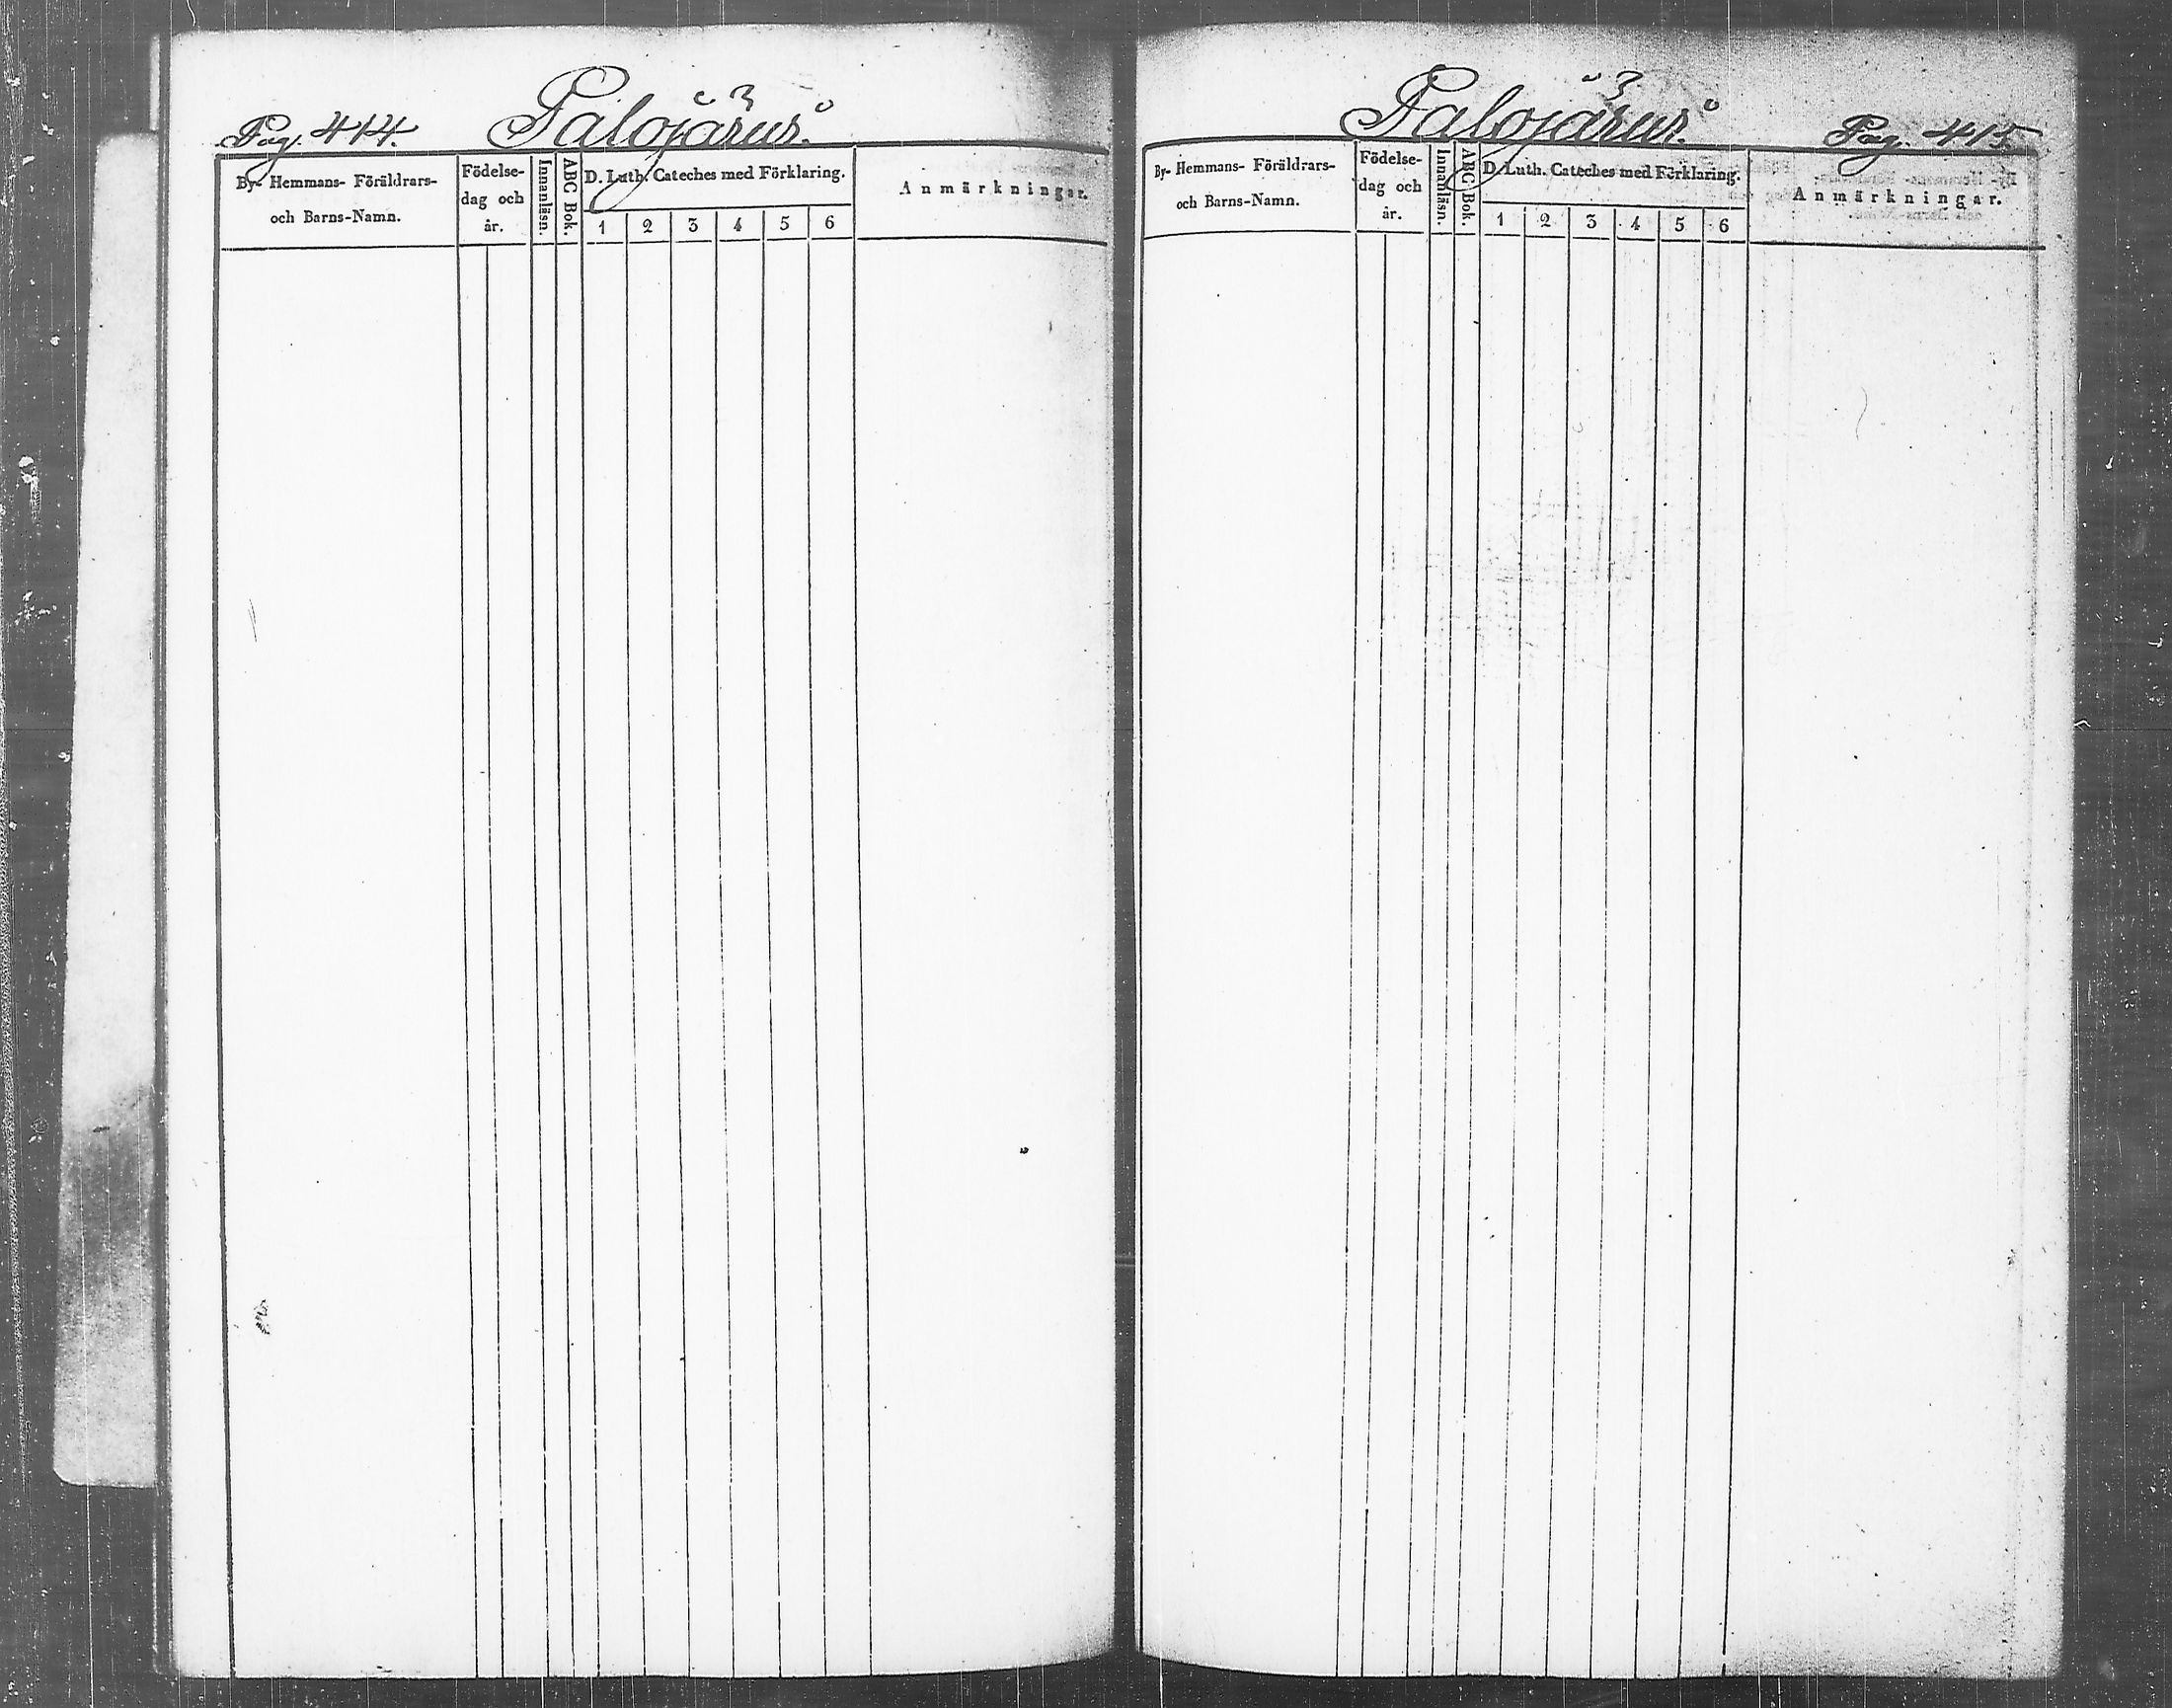 Pag. 414. Palojärvi.
By- Hemmans- Föräldrars-
och Barns-Namn.
Födelse-
dag och
år.
Innanläsn.
ABC Bok.
D. Luth. Cateches med Förklaring.
1 2 3 4 5 6
Anmärkningar.
Palojärvi. Pag. 415.
By- Hemmans- Föräldrars-
och Barns-Namn.
Födelse-
dag och
år.
Innanläsn.
ABC Bok.
D. Luth. Cateches med Förklaring.
1 2 3 4 5 6
Anmärkningar.